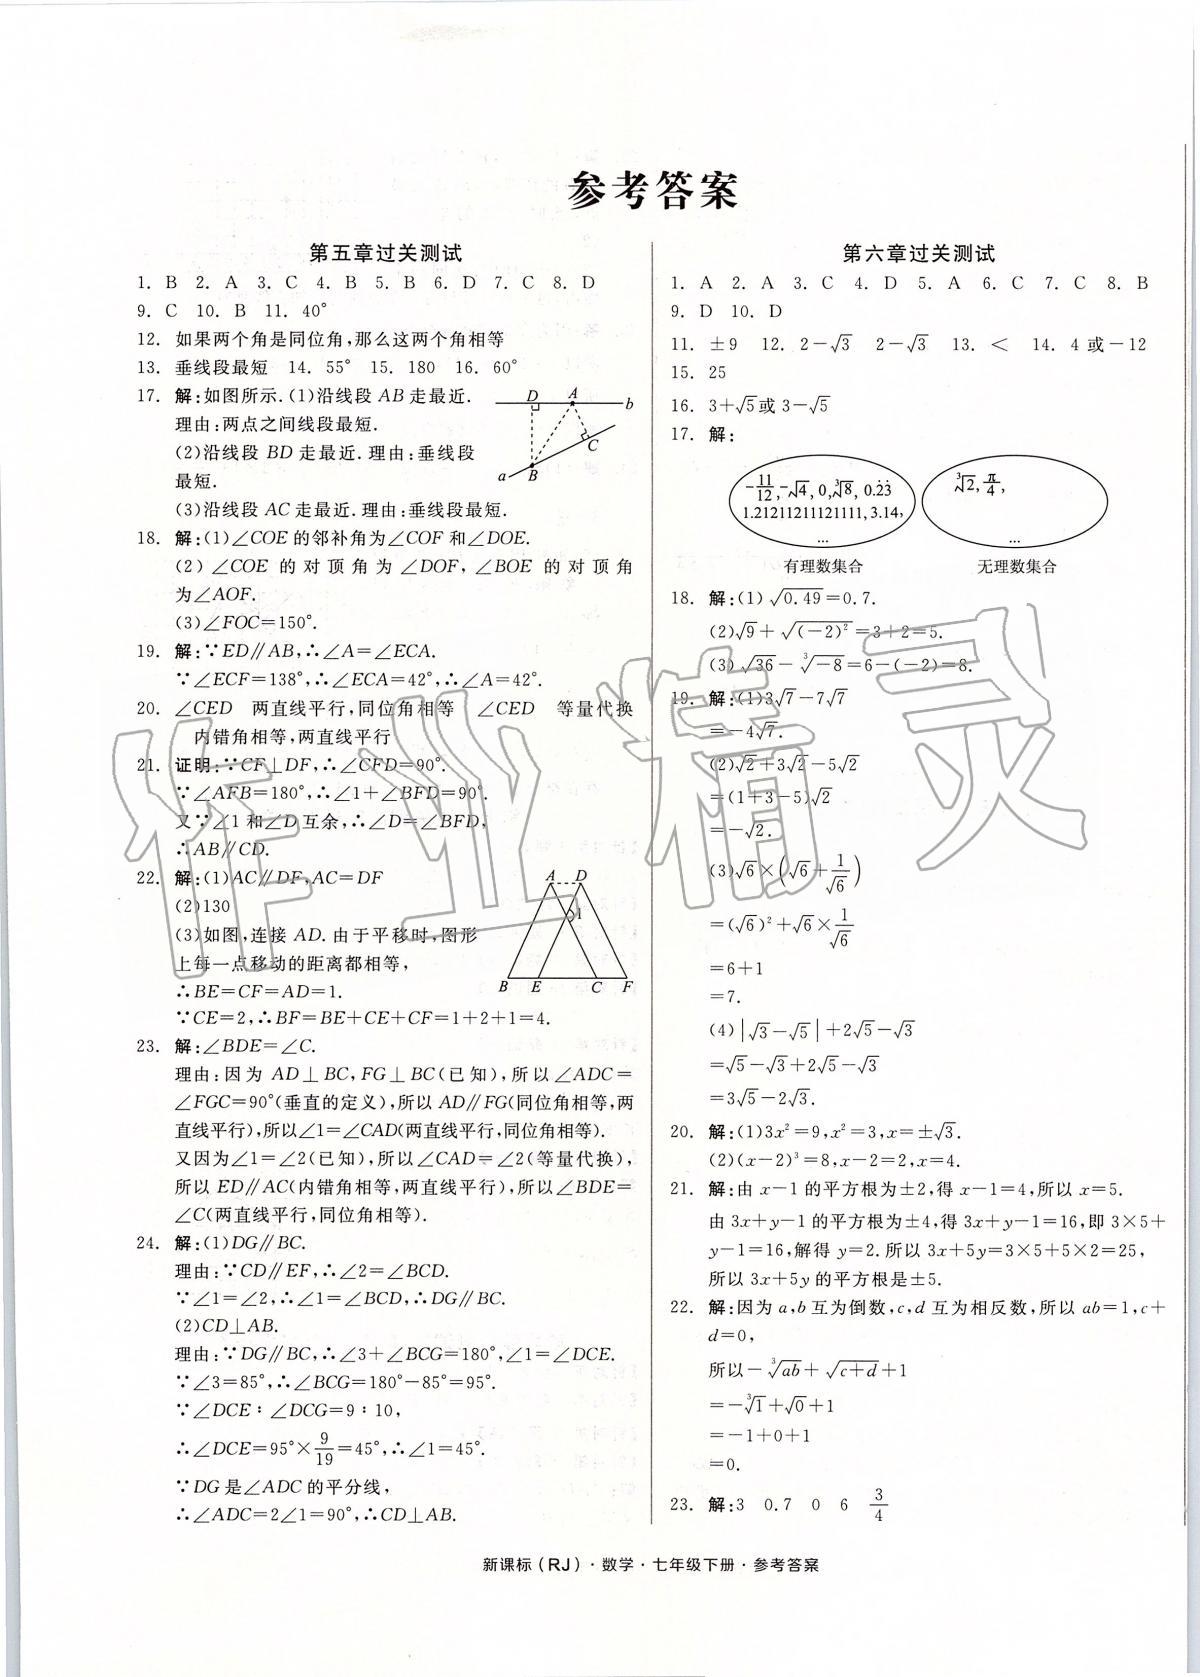 参考答案
第五章过关测试
1. B 2. A 3. C 4. B 5. B 6. D 7. C 8. D
9. C 10. B 11. 40°
12. 如果两个角是同位角,那么这两个角相等
13. 垂线段最短 14. 55° 15. 180 16. 60°
17. 解:如图所示.(1)沿线段 AB 走最近.
理由:两点之间线段最短.
(2)沿线段 BD 走最近.理由:垂线段
最短.
(3)沿线段 AC 走最近.理由:垂线段最短.
D A b
C
a B
18. 解:(1)∠COE 的邻补角为∠COF 和∠DOE.
(2)∠COE 的对顶角为∠DOF,∠BOE 的对顶角
为∠AOF.
(3)∠FOC=150°.
19. 解:∵ED∥AB,∴∠A=∠ECA.
∵∠ECF=138°,∴∠ECA=42°,∴∠A=42°.
20. ∠CED 两直线平行,同位角相等 ∠CED 等量代换
内错角相等,两直线平行
21. 证明:∵CF⊥DF,∴∠CFD=90°.
∵∠AFB=180°,∴∠1+∠BFD=90°.
又∵∠1和∠D互余,∴∠D=∠BFD,
∴AB∥CD.
22. 解:(1)AC∥DF,AC=DF
(2)130
(3)如图,连接 AD.由于平移时,图形
上每一点移动的距离都相等,
∴BE=CF=AD=1.
∵CE=2,∴BF=BE+CE+CF=1+2+1=4.
A D
1
B E C F
23. 解:∠BDE=∠C.
理由:因为 AD⊥BC,FG⊥BC(已知),所以∠ADC=
∠FGC=90°(垂直的定义),所以 AD∥FG(同位角相等,两
直线平行),所以∠1=∠CAD(两直线平行,同位角相等).
又因为∠1=∠2(已知),所以∠CAD=∠2(等量代换),
所以 ED∥AC(内错角相等,两直线平行),所以∠BDE=
∠C(两直线平行,同位角相等).
24. 解:(1)DG∥BC.
理由:∵CD∥EF,∴∠2=∠BCD.
∵∠1=∠2,∴∠1=∠BCD,∴DG∥BC.
(2)CD⊥AB.
理由:∵DG∥BC,∴∠3+∠BCG=180°,∠1=∠DCE.
∵∠3=85°,∴∠BCG=180°−85°=95°.
∵∠DCE∶∠DCG=9∶10,
∴∠DCE=95°×9/19=45°,∴∠1=45°.
∵DG 是∠ADC 的平分线,
∴∠ADC=2∠1=90°,∴CD⊥AB.
第六章过关测试
1. A 2. A 3. C 4. D 5. A 6. C 7. C 8. B
9. D 10. D
11. ±9 12. 2−√3 2−√3 13. < 14. 4 或−12
15. 25
16. 3+√5或 3−√5
17. 解:
−11/12,−√4,0,∛8,0.2̇3̇
1.21211211121111,3.14,
…
有理数集合
∛2,π/4,
…
无理数集合
18. 解:(1)√0.49=0.7.
(2)√9+√(−2)²=3+2=5.
(3)√36−∛−8=6−(−2)=8.
19. 解:(1)3√7−7√7
=−4√7.
(2)√2+3√2−5√2
=(1+3−5)√2
=−√2.
(3)√6×(√6+1/√6)
=(√6)²+√6×1/√6
=6+1
=7.
(4)|√3−√5|+2√5−√3
=√5−√3+2√5−√3
=3√5−2√3.
20. 解:(1)3x²=9,x²=3,x=±√3.
(2)(x−2)³=8,x−2=2,x=4.
21. 解:由 x−1 的平方根为±2,得 x−1=4,所以 x=5.
由 3x+y−1 的平方根为±4,得 3x+y−1=16,即 3×5+
y−1=16,解得 y=2.所以 3x+5y=3×5+5×2=25,
所以 3x+5y 的平方根是±5.
22. 解:因为 a,b 互为倒数,c,d 互为相反数,所以 ab=1,c+
d=0,
所以−∛ab+√c+d+1
=−∛1+√0+1
=−1+0+1
=0.
23. 解:3 0.7 0 6 3/4
新课标(RJ)·数学·七年级下册·参考答案
作业精灵